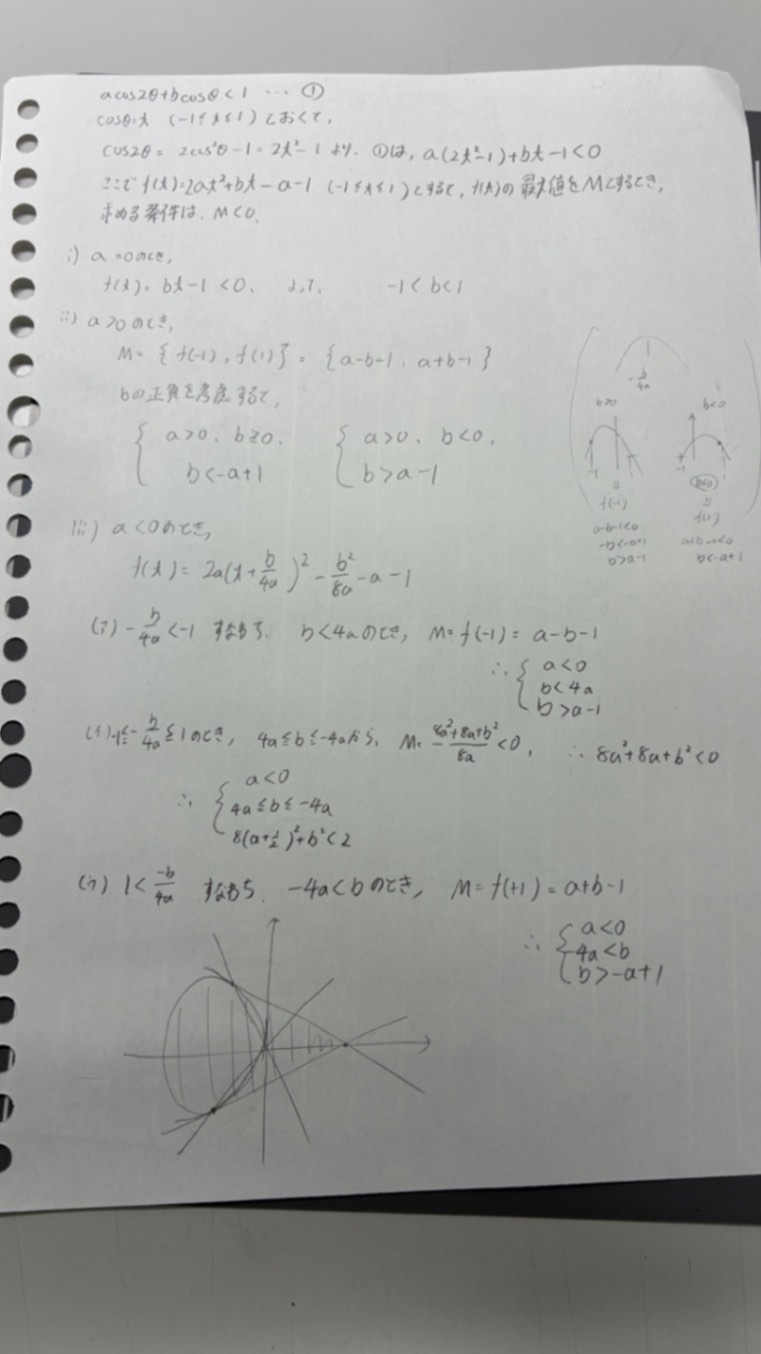 acos2θ+bcosθ<1 … ①
cosθ=t (-1≤t≤1)とおくて、
cos2θ = 2cos²θ-1=2t²-1 より、①は、a(2t²-1)+bt-1<0
ここで f(t)=2at²+bt-a-1 (-1≤t≤1)とすると、f(t)の最大値をMとするとき、
求める条件は、M<0.
i) a=0のとき、
f(t)= bt-1<0、よって、 -1<b<1
ii) a>0のとき、
M= {f(-1), f(1)} = {a-b+1、a+b-1}
bの正負を考慮すると、
{ a>0、b≥0、 b<-a+1
{ a>0、b<0、 b>a-1
-b/4a
b≥0 b<0
-1 1 -1 1
f(-1) f(1)
a-b-1<0 a+b-1<0
-b<-a+1 b<-a+1
b>a-1
iii) a<0のとき、
f(t)= 2a(t+b/4a)² - b²/8a - a - 1
(ア) -b/4a<-1 すなわち、b<4aのとき、M=f(-1)= a-b-1
∴ { a<0 b<4a b>a-1
(イ) -1≤-b/4a≤1のとき、4a≤b≤-4aから、M=-(8a²+8a+b²)/8a<0、 ∴ 8a²+8a+b²<0
∴ { a<0 4a≤b≤-4a 8(a+1/2)²+b²<2
(ウ) 1<-b/4a すなわち、-4a<bのとき、M=f(+1)=a+b-1
∴ { a<0 4a<b b>-a+1